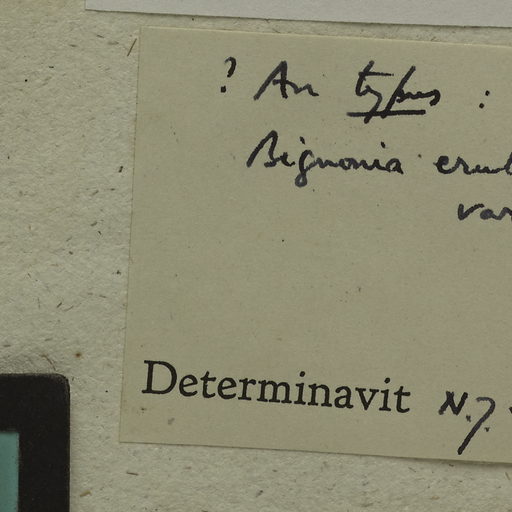 ? An typus :
Bignonia
var
Determinavit N.J.